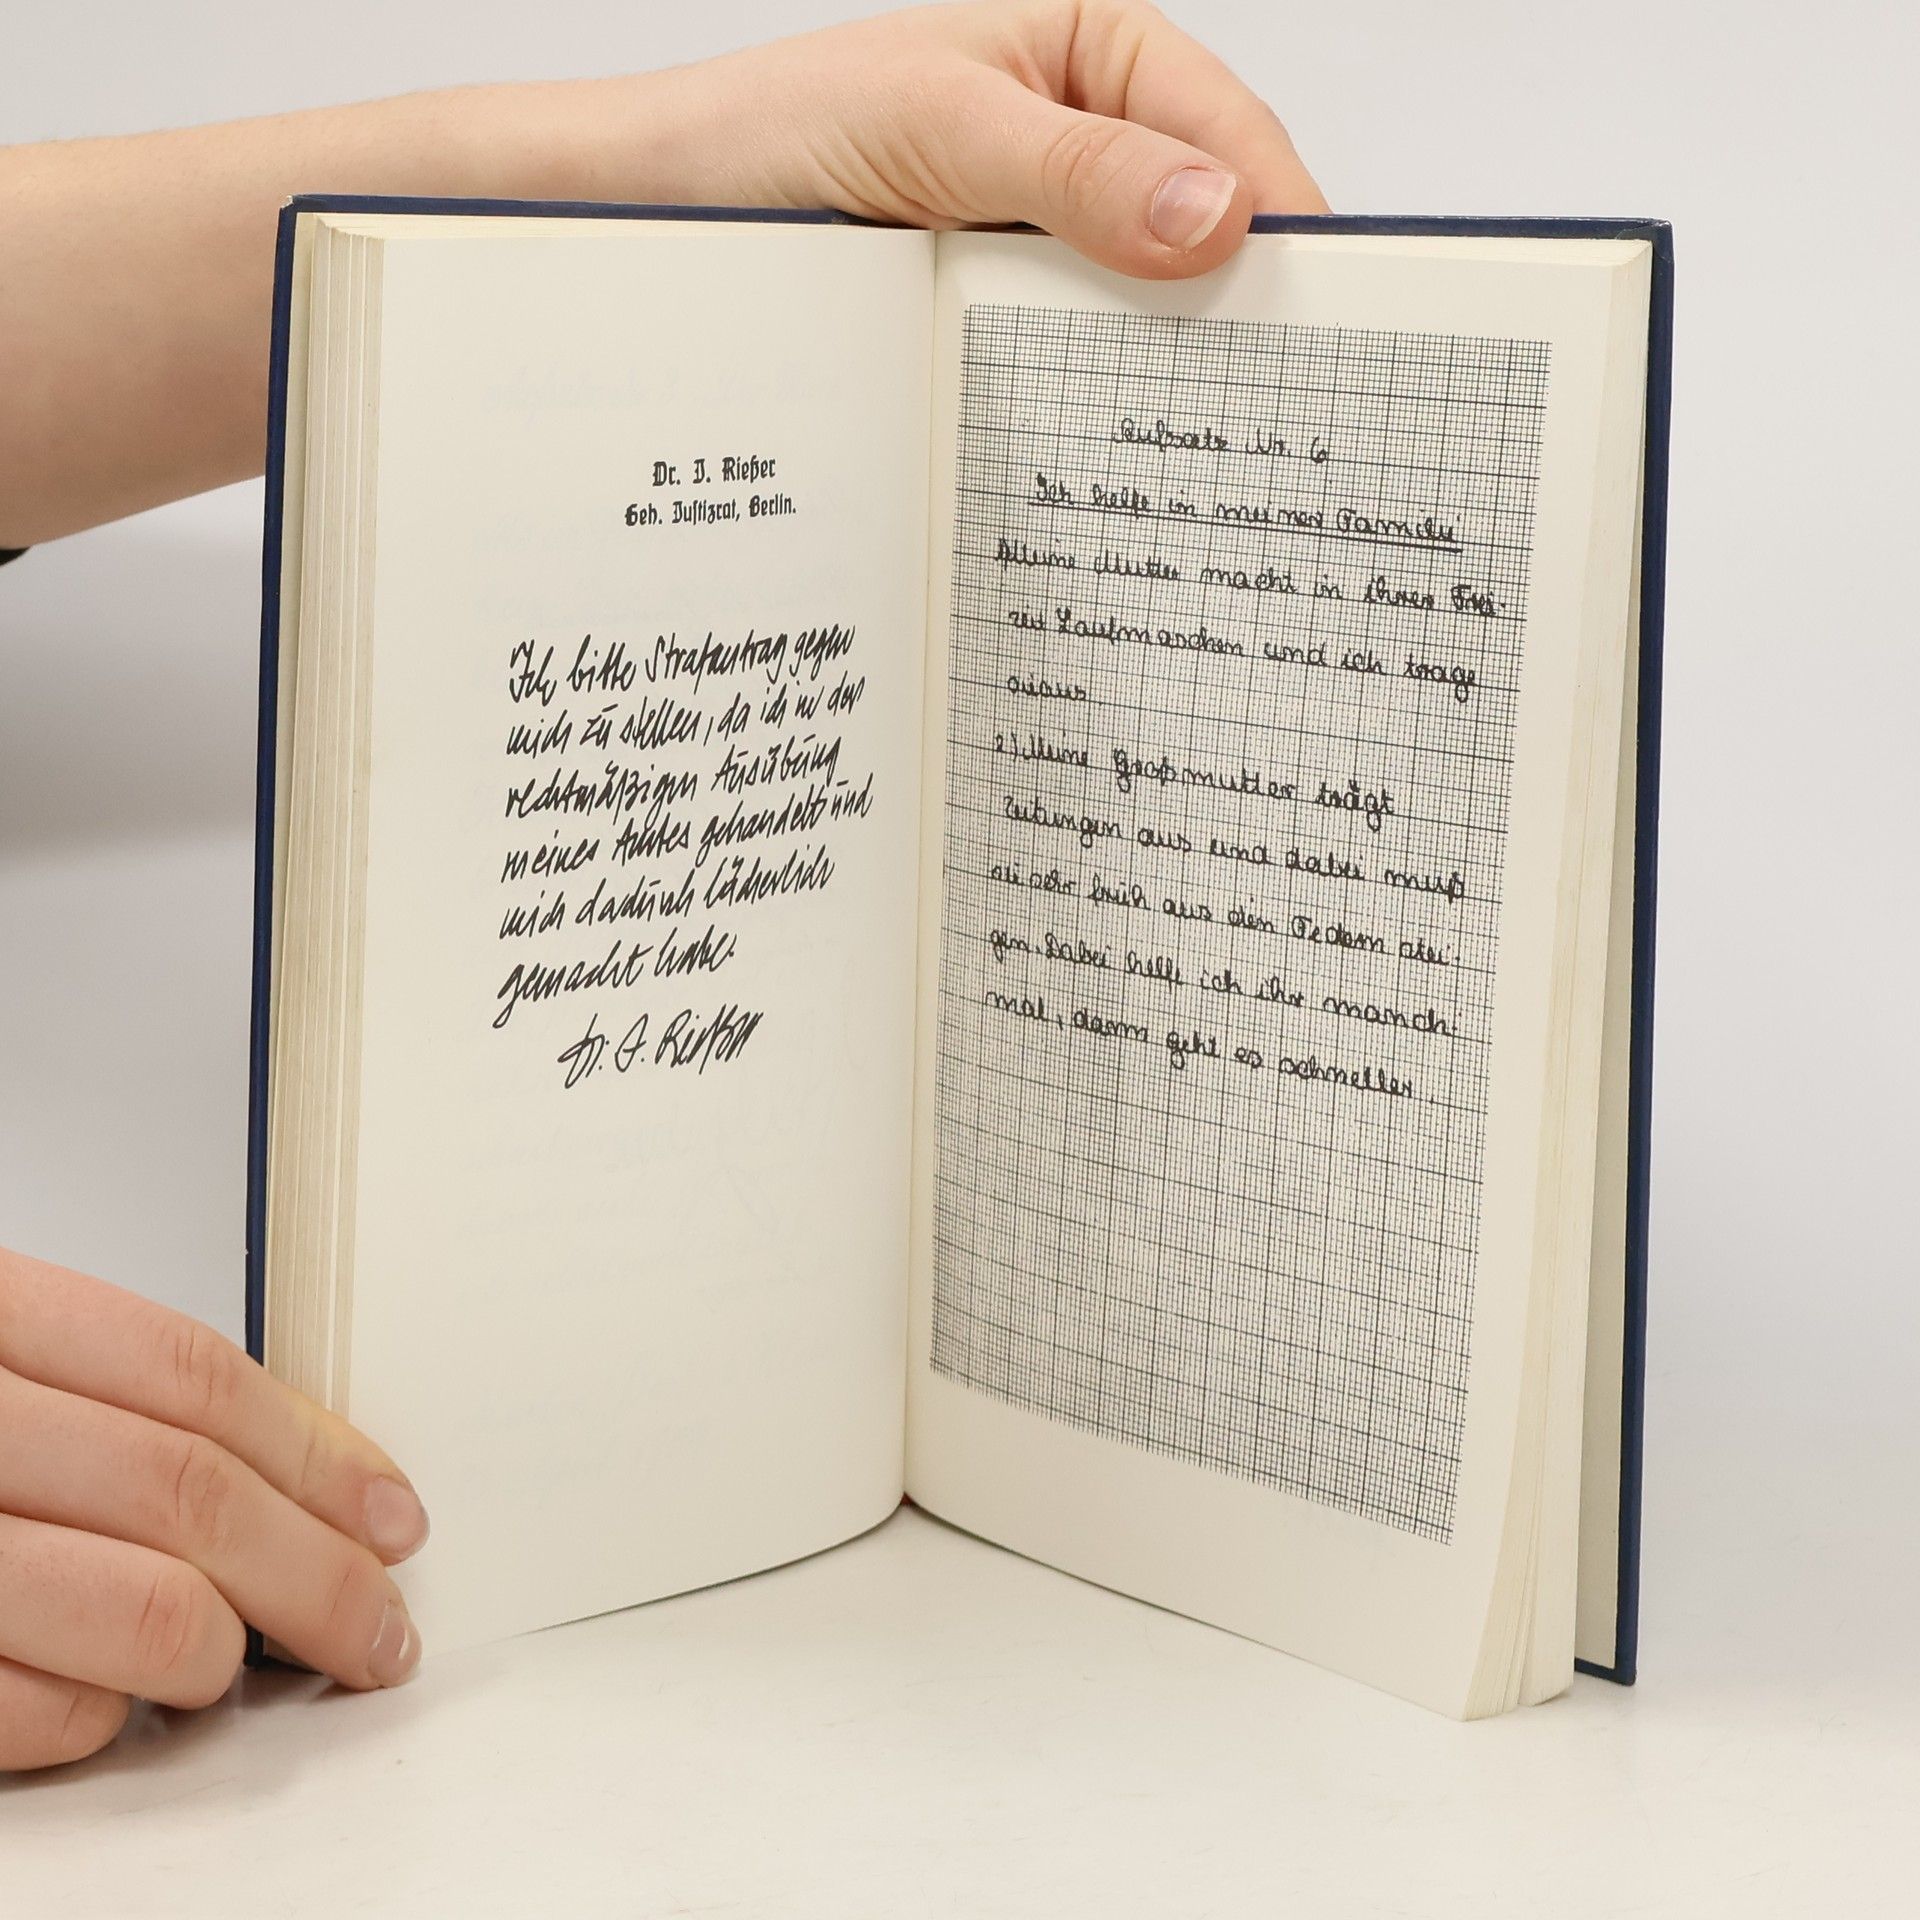 Dr. J. Rießer
Geh. Justizrat, Berlin.
Ich bitte Strafantrag gegen
mich zu stellen, da ich in der
rechtmäßigen Ausübung
meines Amtes gehandelt und
mich dadurch lächerlich
gemacht habe.
Dr. J. Rießer
Aufsatz Nr. 6
Ich helfe in meiner Familie
Meine Mutter macht in ihrer Frei-
zeit Laufmaschen und ich trage
sie aus.
2) Meine Großmutter trägt
Zeitungen aus und dabei muß
sie sehr früh aus den Federn stei-
gen. Dabei helfe ich ihr manch-
mal, dann geht es schneller.